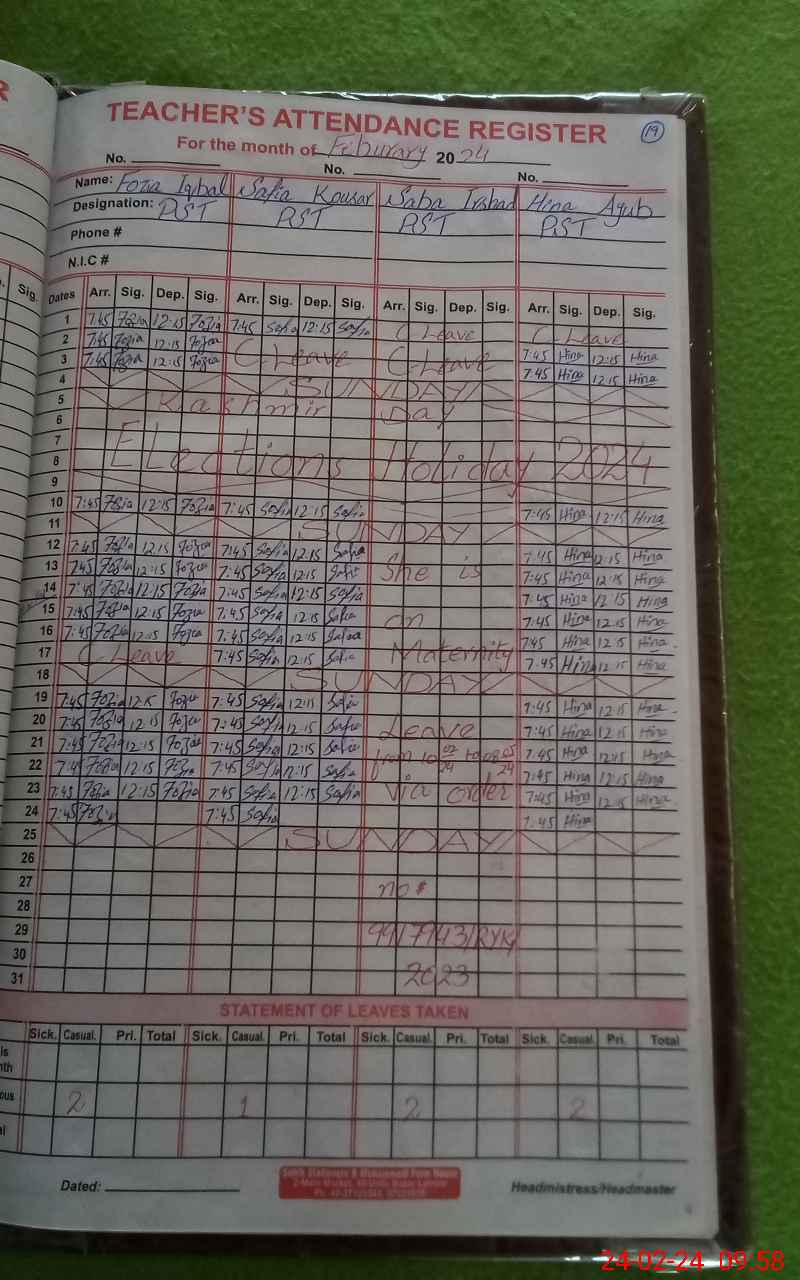 R
TEACHER'S ATTENDANCE REGISTER
19
For the month of Feburary 2024
No. No. No.
Name: Fozia Iqbal Safia Kousar Saba Irshad Hina Ayub
Designation: PST PST PST PST
Phone #
N.I.C #
Sig. Dates Arr. Sig. Dep. Sig. Arr. Sig. Dep. Sig. Arr. Sig. Dep. Sig. Arr. Sig. Dep. Sig.
1 7:45 Fozia 12:15 Fozia 7:45 Safia 12:15 Safia C-Leave C-Leave
2 7:45 Fozia 12:15 Fozia C-Leave C-Leave 7:45 Hina 12:15 Hina
3 7:45 Fozia 12:15 Fozia 7:45 Hina 12:15 Hina
4 SUNDAY
5 Kashmir Day
6
7
8 Elections Holiday 2024
9
10 7:45 Fozia 12:15 Fozia 7:45 Safia 12:15 Safia 7:45 Hina 12:15 Hina
11 SUNDAY
12 7:45 Fozia 12:15 Fozia 7:45 Safia 12:15 Safia 7:45 Hina 12:15 Hina
13 7:45 Fozia 12:15 Fozia 7:45 Safia 12:15 Safia She is 7:45 Hina 12:15 Hina
14 7:45 Fozia 12:15 Fozia 7:45 Safia 12:15 Safia 7:45 Hina 12:15 Hina
15 7:45 Fozia 12:15 Fozia 7:45 Safia 12:15 Safia on 7:45 Hina 12:15 Hina
16 7:45 Fozia 12:15 Fozia 7:45 Safia 12:15 Safia 7:45 Hina 12:15 Hina
17 C-Leave 7:45 Safia 12:15 Safia Maternity 7:45 Hina 12:15 Hina
18 SUNDAY
19 7:45 Fozia 12:15 Fozia 7:45 Safia 12:15 Safia 7:45 Hina 12:15 Hina
20 7:45 Fozia 12:15 Fozia 7:45 Safia 12:15 Safia Leave 7:45 Hina 12:15 Hina
21 7:45 Fozia 12:15 Fozia 7:45 Safia 12:15 Safia from 10 02 24 to 08 05 24 7:45 Hina 12:45 Hina
22 7:45 Fozia 12:15 Fozia 7:45 Safia 12:15 Safia 7:45 Hina 12:15 Hina
23 7:45 Fozia 12:15 Fozia 7:45 Safia 12:15 Safia via order 7:45 Hina 12:15 Hina
24 7:45 Fozia 7:45 Safia 7:45 Hina
25 SUNDAY
26
27 no#
28
29 2023
30
31
STATEMENT OF LEAVES TAKEN
Sick. Casual. Pri. Total Sick. Casual. Pri. Total Sick. Casual. Pri. Total Sick. Casual. Pri. Total
2 1 2 2
Dated: Headmistress/Headmaster
24-02-24 09:58